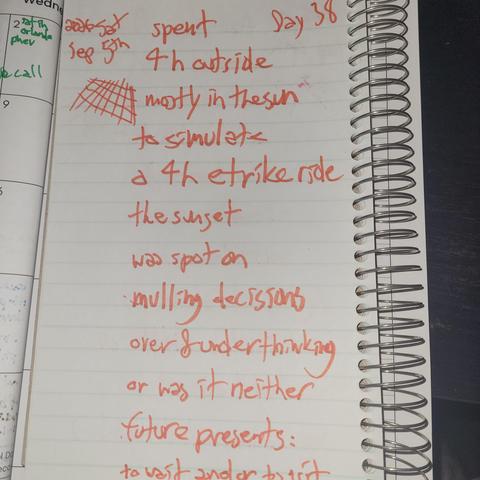 Wedne
2
call
9
Day 38
sep 5th
spent
4h outside
mostly in the sun
to simulate
a 4h etrike ride
the sunset
was spot on
mulling decisions
over & underthinking
or was it neither
future presents:
to wait and or to